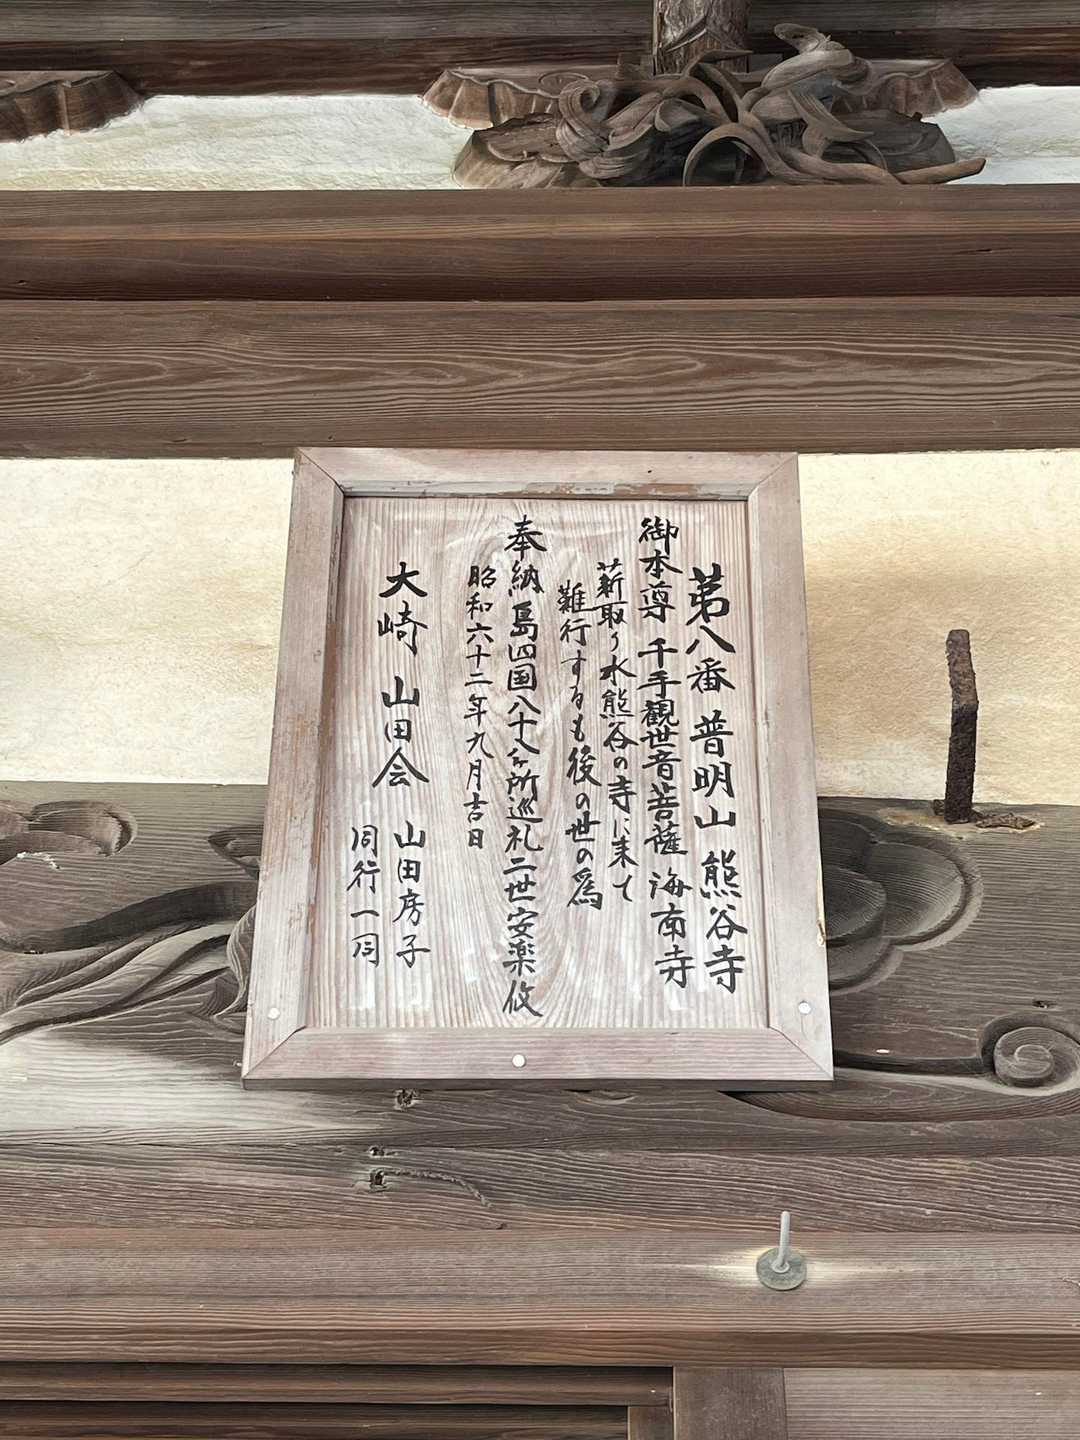 第八番 普明山 熊谷寺
御本尊 千手観世音菩薩 海南寺
薪取り水熊谷の寺に来て
難行するも後の世の為
奉納 島四国八十八ヶ所巡礼二世安楽攸
昭和六十二年九月吉日
大崎 山田会 山田房子
同行一同